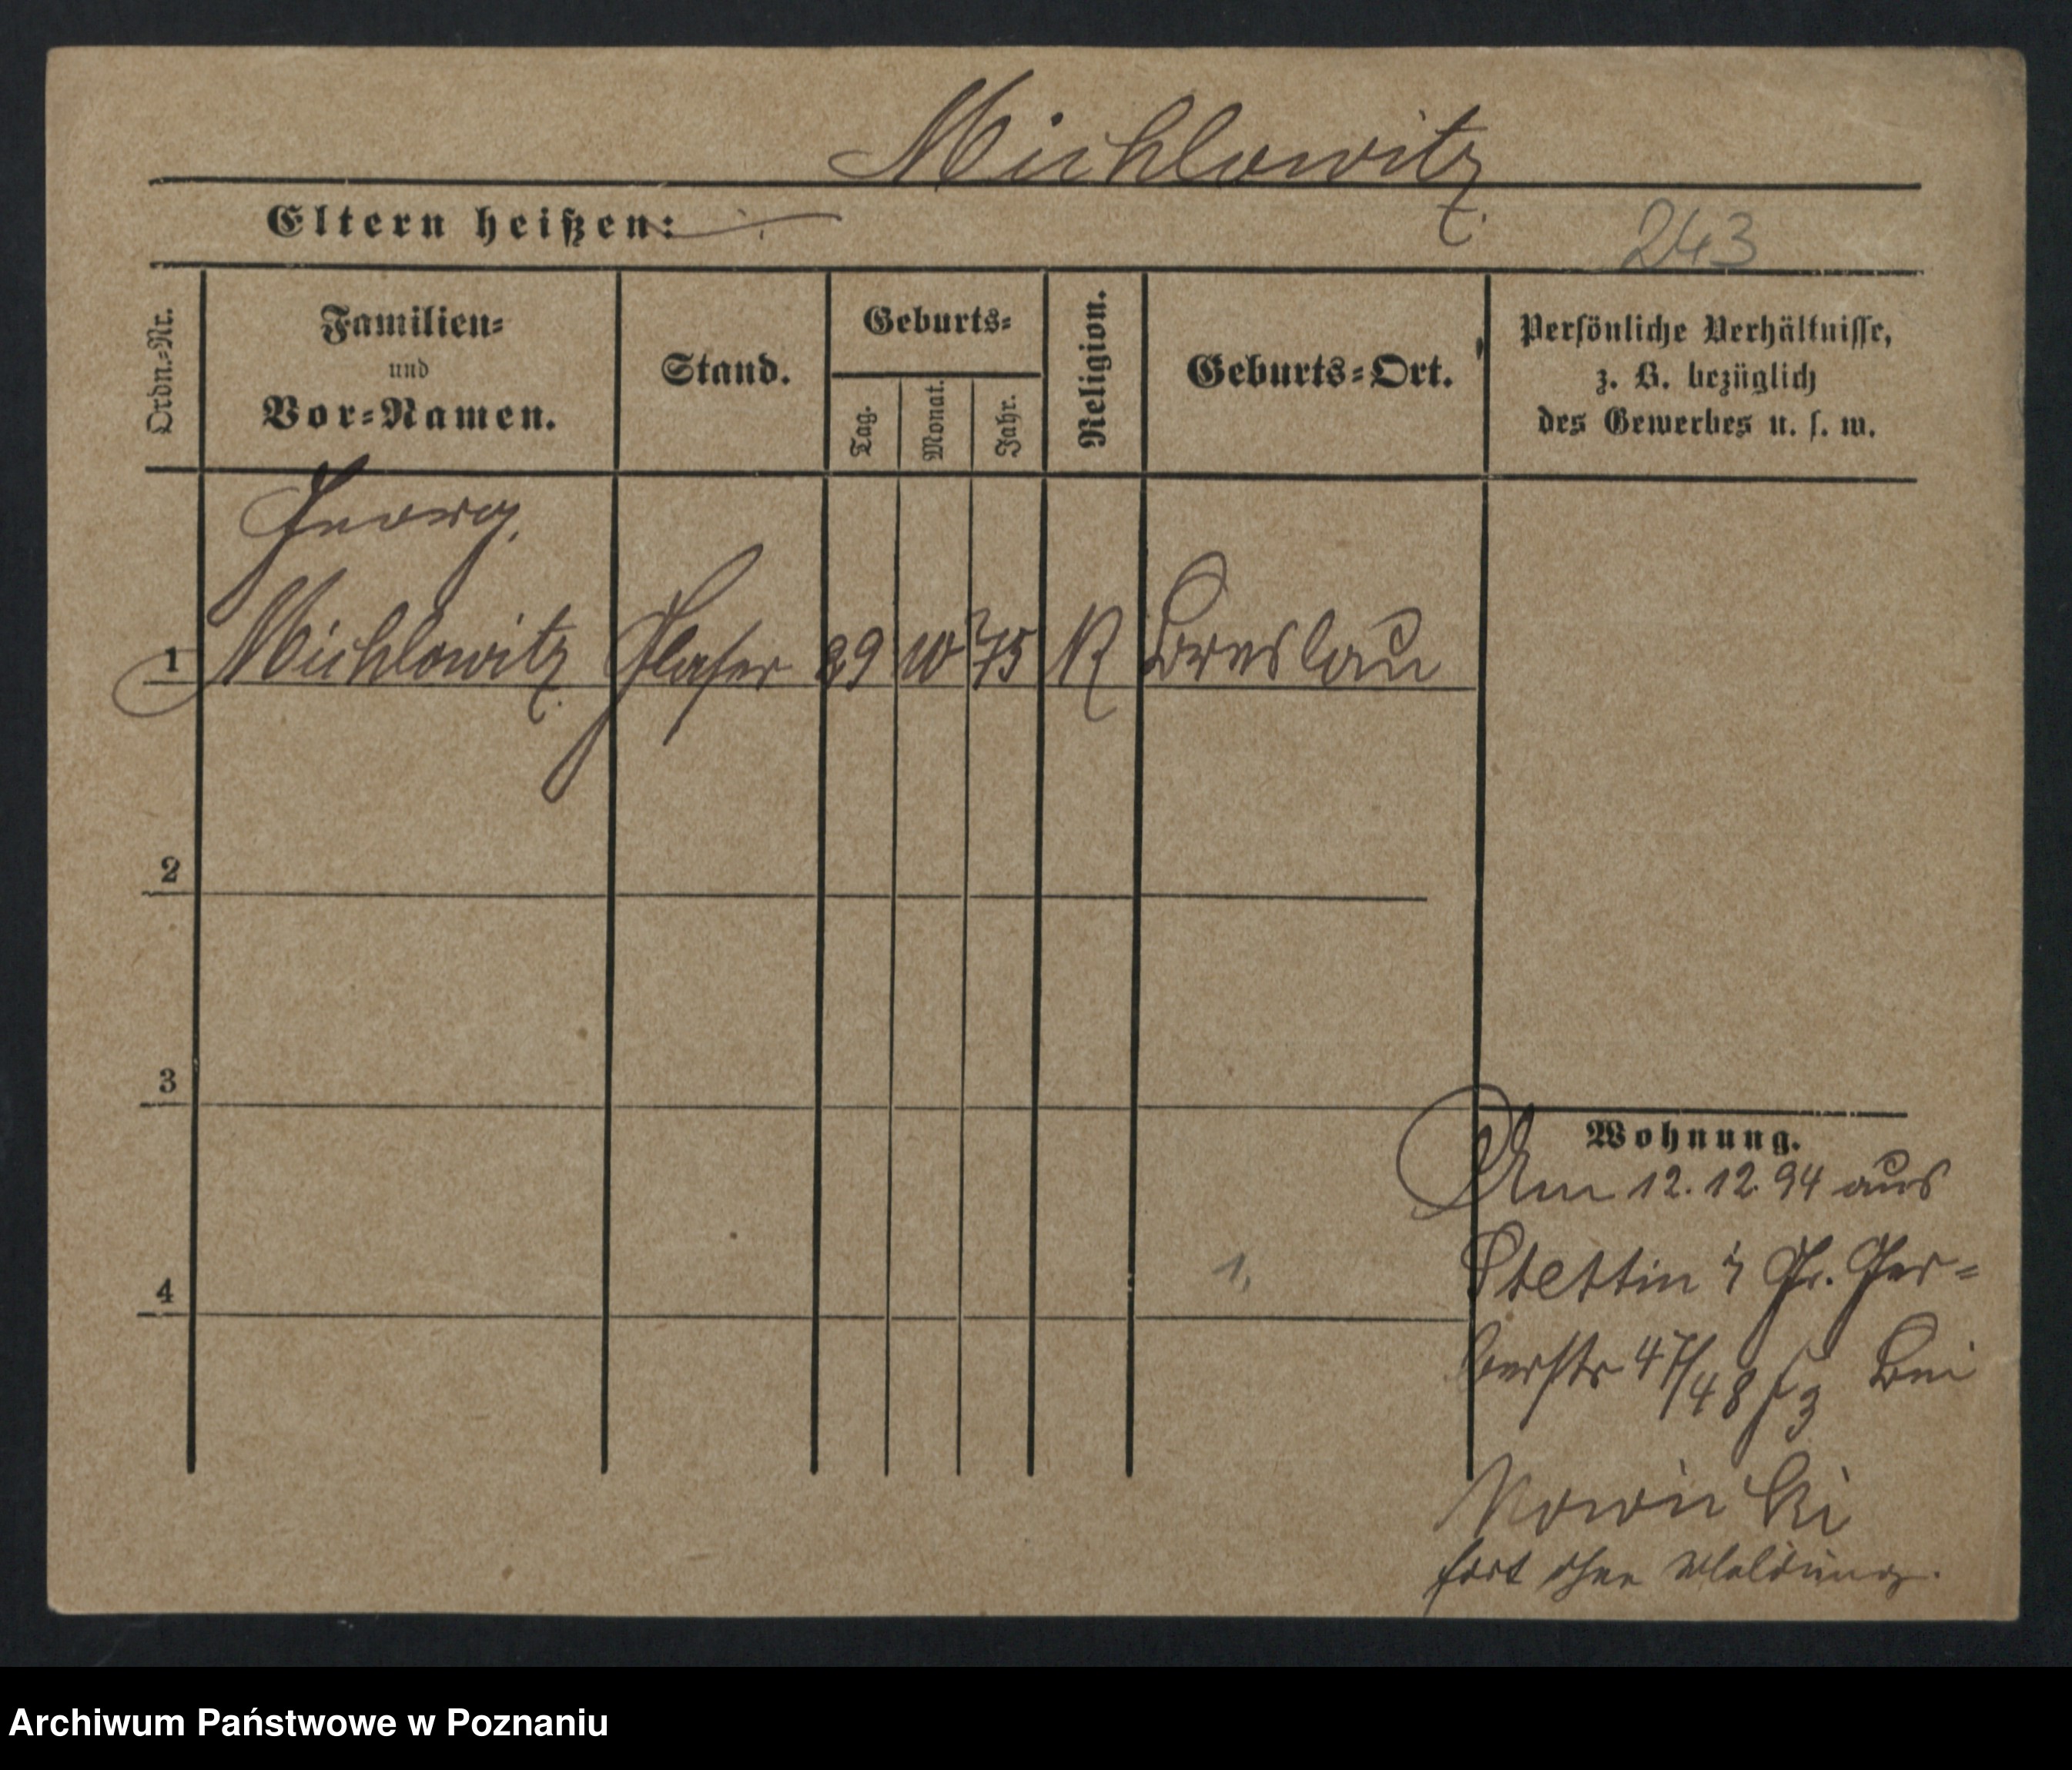 Michlowitz
Eltern heißen:
243
Ordn.=Nr.
Familien=
und
Vor=Namen.
Stand.
Geburts=
Tag.
Monat.
Jahr.
Religion.
Geburts=Ort.
Persönliche Verhältnisse,
z. B. bezüglich
des Gewerbes u. s. w.
Georg
1 Michlowitz Glaser 29 10 75 K Breslau
2
3
4
1,
Wohnung.
Am 12.12.94 aus
Stettin Gr. Ger=
berstr 47/48 bei
Nowicki
fort ohne Meldung.
Archiwum Państwowe w Poznaniu